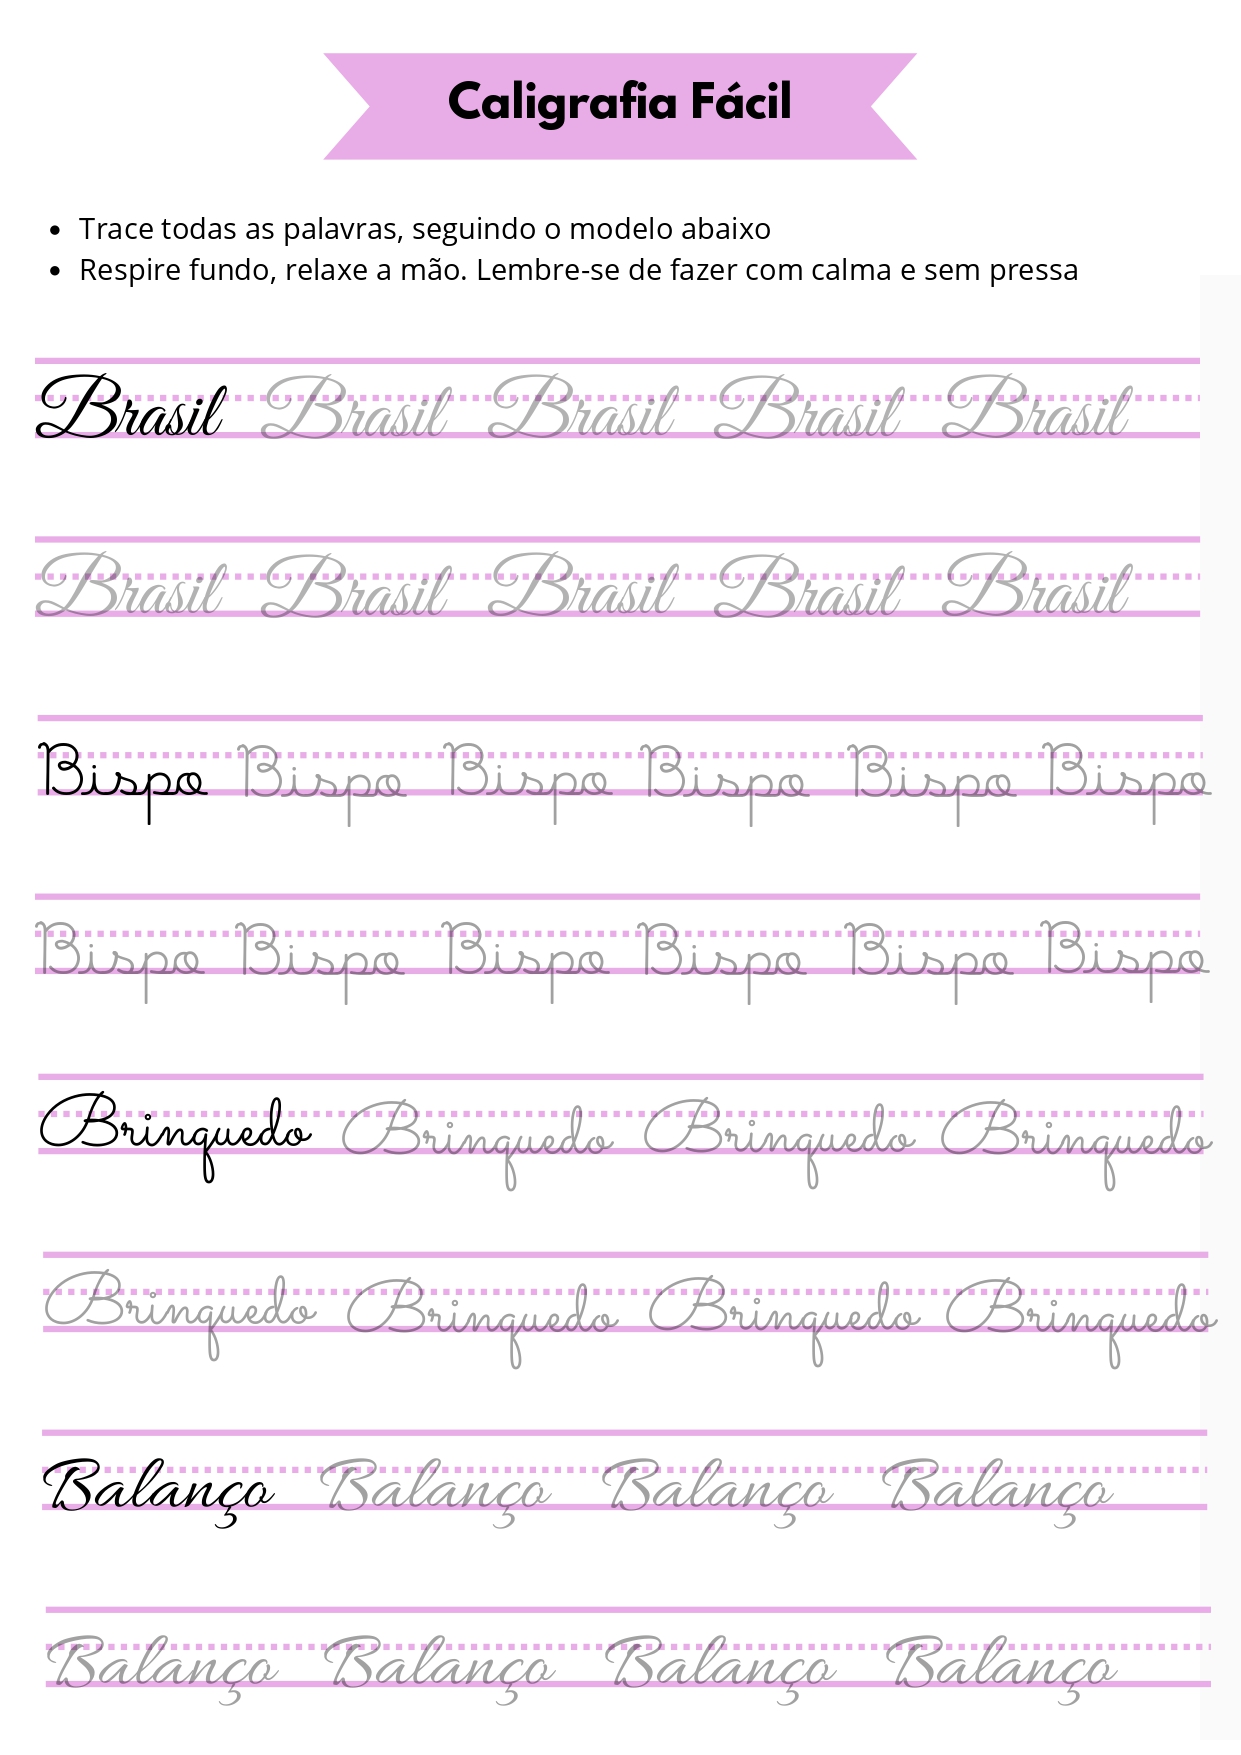 Caligrafia Fácil
• Trace todas as palavras, seguindo o modelo abaixo
• Respire fundo, relaxe a mão. Lembre-se de fazer com calma e sem pressa
Brasil Brasil Brasil Brasil Brasil
Brasil Brasil Brasil Brasil Brasil
Bispo Bispo Bispo Bispo Bispo Bispo
Bispo Bispo Bispo Bispo Bispo Bispo
Brinquedo Brinquedo Brinquedo Brinquedo
Brinquedo Brinquedo Brinquedo Brinquedo
Balanço Balanço Balanço Balanço
Balanço Balanço Balanço Balanço